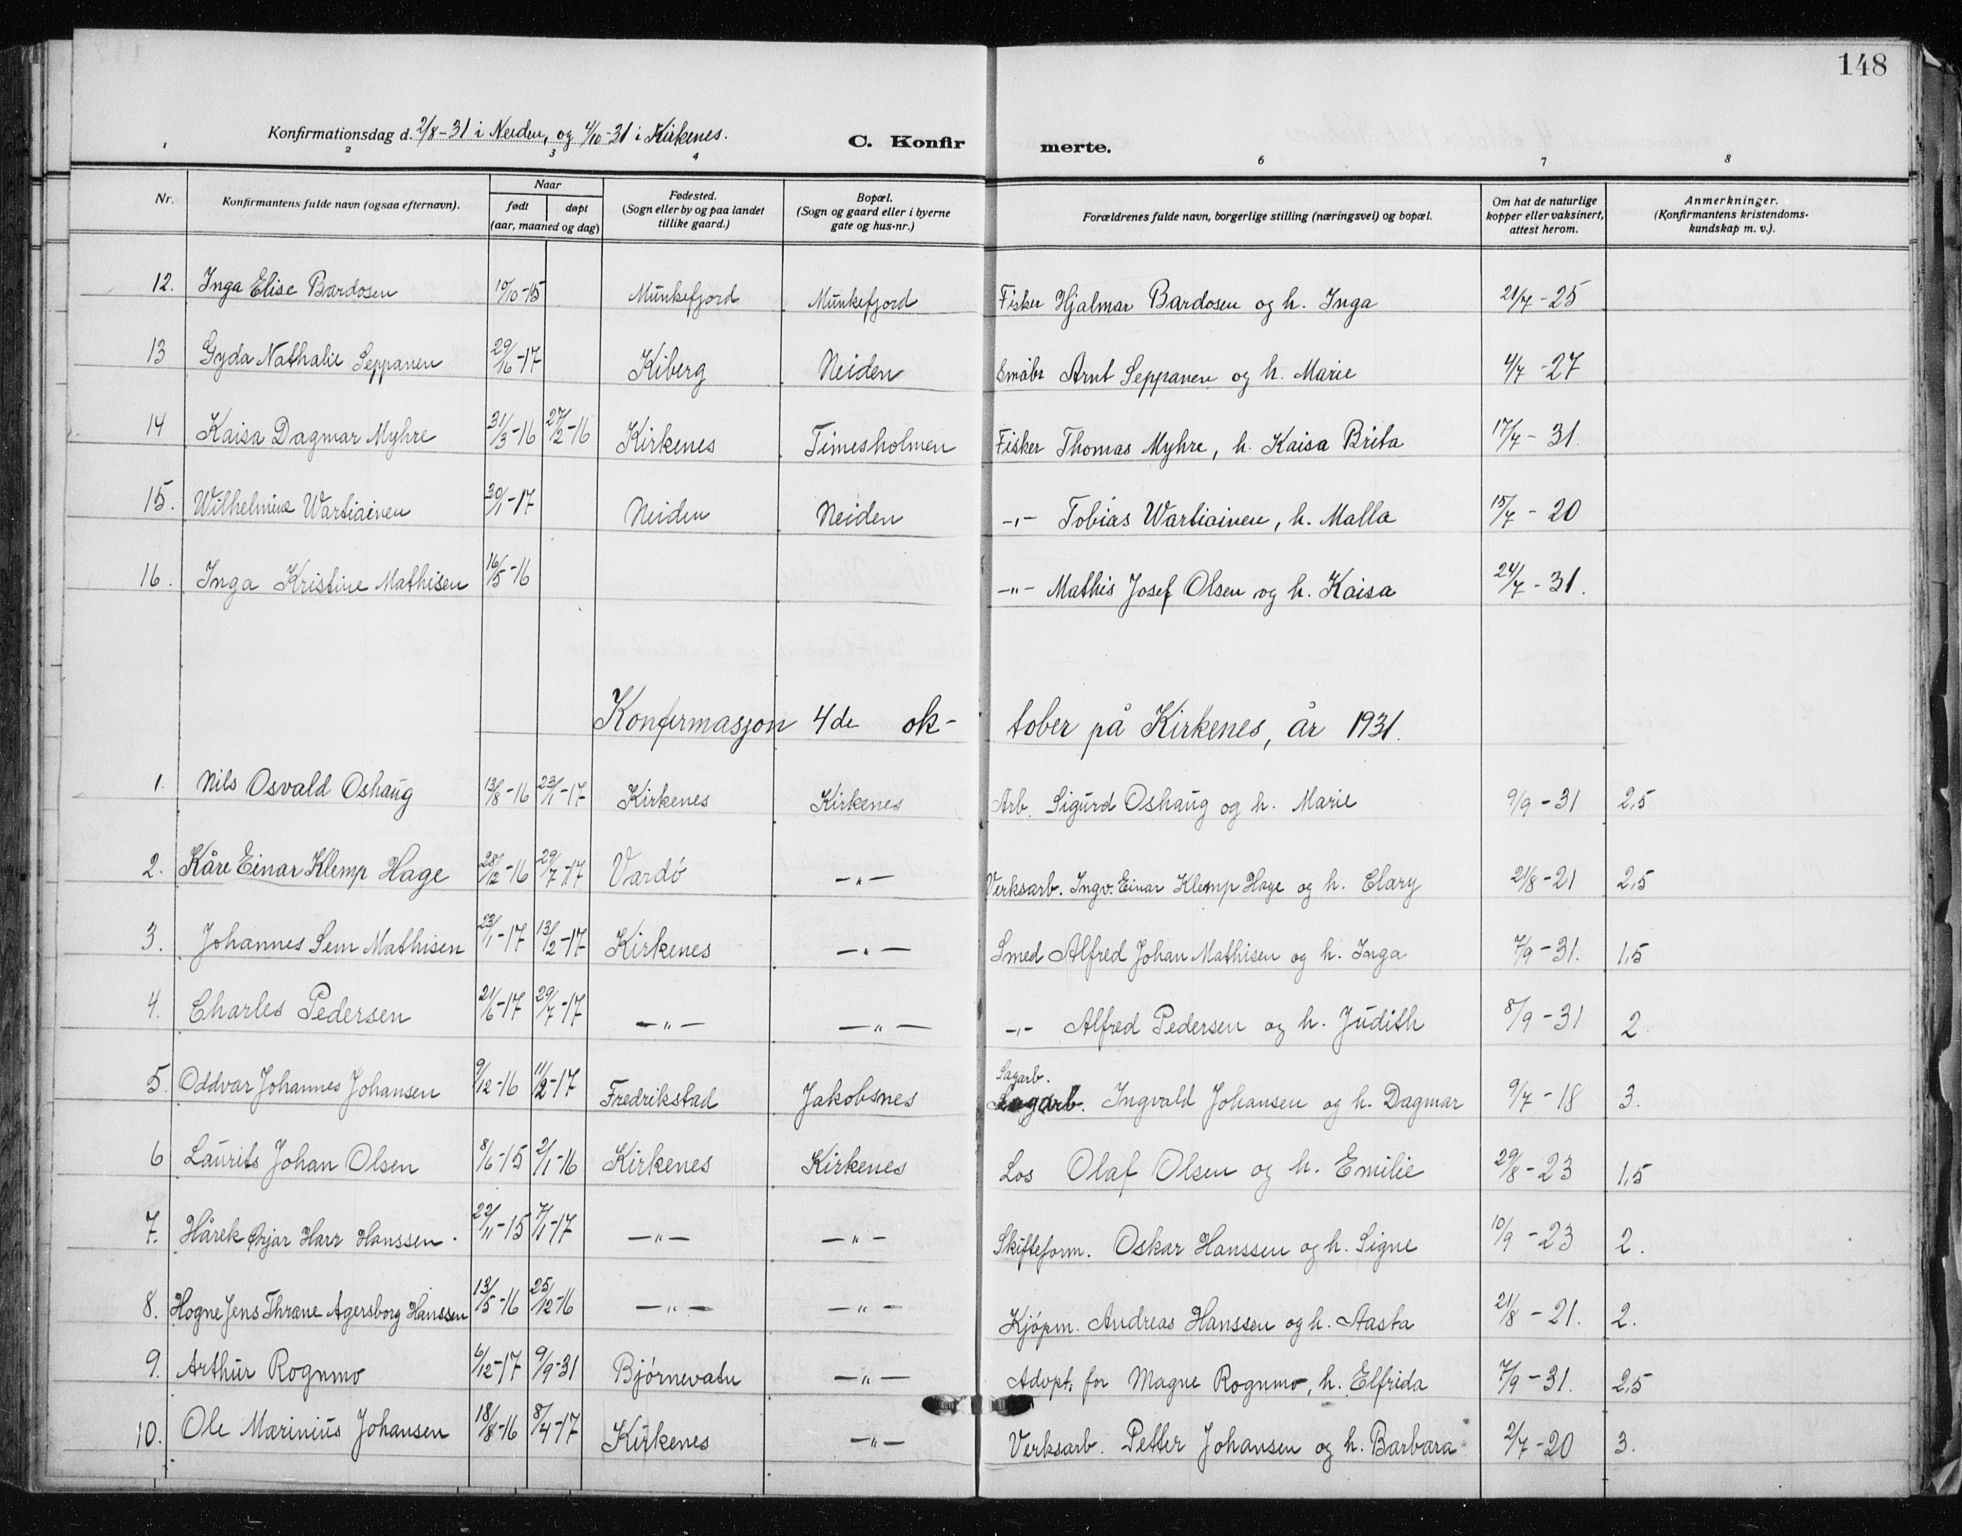 148
Konfirmationsdag d. 2/8-31 i Neiden, og 4/10-31 i Kirkenes. C. Konfirmerte.
1 2 3 4 6 7 8
Nr. Konfirmantens fulde navn (ogsaa efternavn). Naar født døpt (aar, maaned og dag) Fødested. (Sogn eller by og paa landet tillike gaard.) Bopæl. (Sogn og gaard eller i byerne gate og hus-nr.) Forældrenes fulde navn, borgerlige stilling (næringsvei) og bopæl. Om hat de naturlige kopper eller vaksinert, attest herom. Anmerkninger. (Konfirmantens kristendoms-kundskap m. v.).
12. Inga Elise Bardosen 10/10-15 Munkefjord Munkefjord Fisker Hjalmar Bardosen og h. Inga 21/7-25
13 Gyda Nathalie Seppanen 29/6-17 Kiberg Neiden Småbr Arnt Seppanen og h. Marie 4/7-27
14 Kaisa Dagmar Myhre 31/3-16 27/2-16 Kirkenes Timesholmen Fisker Thomas Myhre, h. Kaisa Brita 17/7-31.
15. Wilhelmine Wartiainen 30/1-17 Neiden Neiden -"- Tobias Wartiainen, h. Malla 15/7-20
16. Inga Kristine Mathisen 16/5-16 -"- Mathis Josef Olsen og h. Kaisa 24/7-31.
Konfirmasjon 4de oktober på Kirkenes, år 1931.
1. Nils Osvald Oshaug 13/8-16 23/1-17 Kirkenes Kirkenes Arb. Sigurd Oshaug og h. Marie 9/9-31 2,5
2. Kåre Einar Klemp Hage 28/12-16 29/7-17 Vardö -"- Verksarb. Ingv. Einar Klemp Hage og h. Clary 21/8-21 2,5
3. Johannes Sem Mathisen 23/1-17 13/2-17 Kirkenes -"- Smed Alfred Johan Mathisen og h. Inga 7/9-31. 1,5
4. Charles Pedersen 21/6-17 29/7-17 -"- -"- -"- Alfred Pedersen og h. Judith 8/9-31 2
5. Oddvar Johannes Johansen 9/12-16 11/2-17 Fredrikstad Jakobsnes Sagarb. Ingvald Johansen og h. Dagmar 9/7-18 3.
6 Laurits Johan Olsen 8/6-15 2/1-16 Kirkenes Kirkenes Los Olaf Olsen og h. Emilie 29/8-23 1,5
7. Hårek Harr Hanssen. 22/11-15 7/1-17 -"- -"- Skifteform. Oskar Hanssen og h. Signe 10/9-23 2.
8. Hogne Jens Thrane Agersborg Hanssen 13/5-16 25/12-16 -"- -"- Kjöpm. Andreas Hanssen og h. Aasta 21/8-21. 2.
9. Arthur Rognmo 6/12-17 9/9-31 Bjørnevatn -"- Adopt. for Magne Rognmo, h. Elfrida 7/9-31. 2,5
10. Ole Marinius Johansen 18/8-16 8/4-17 Kirkenes -"- Verksarb. Petter Johansen og h. Barbara 2/7-20 3.